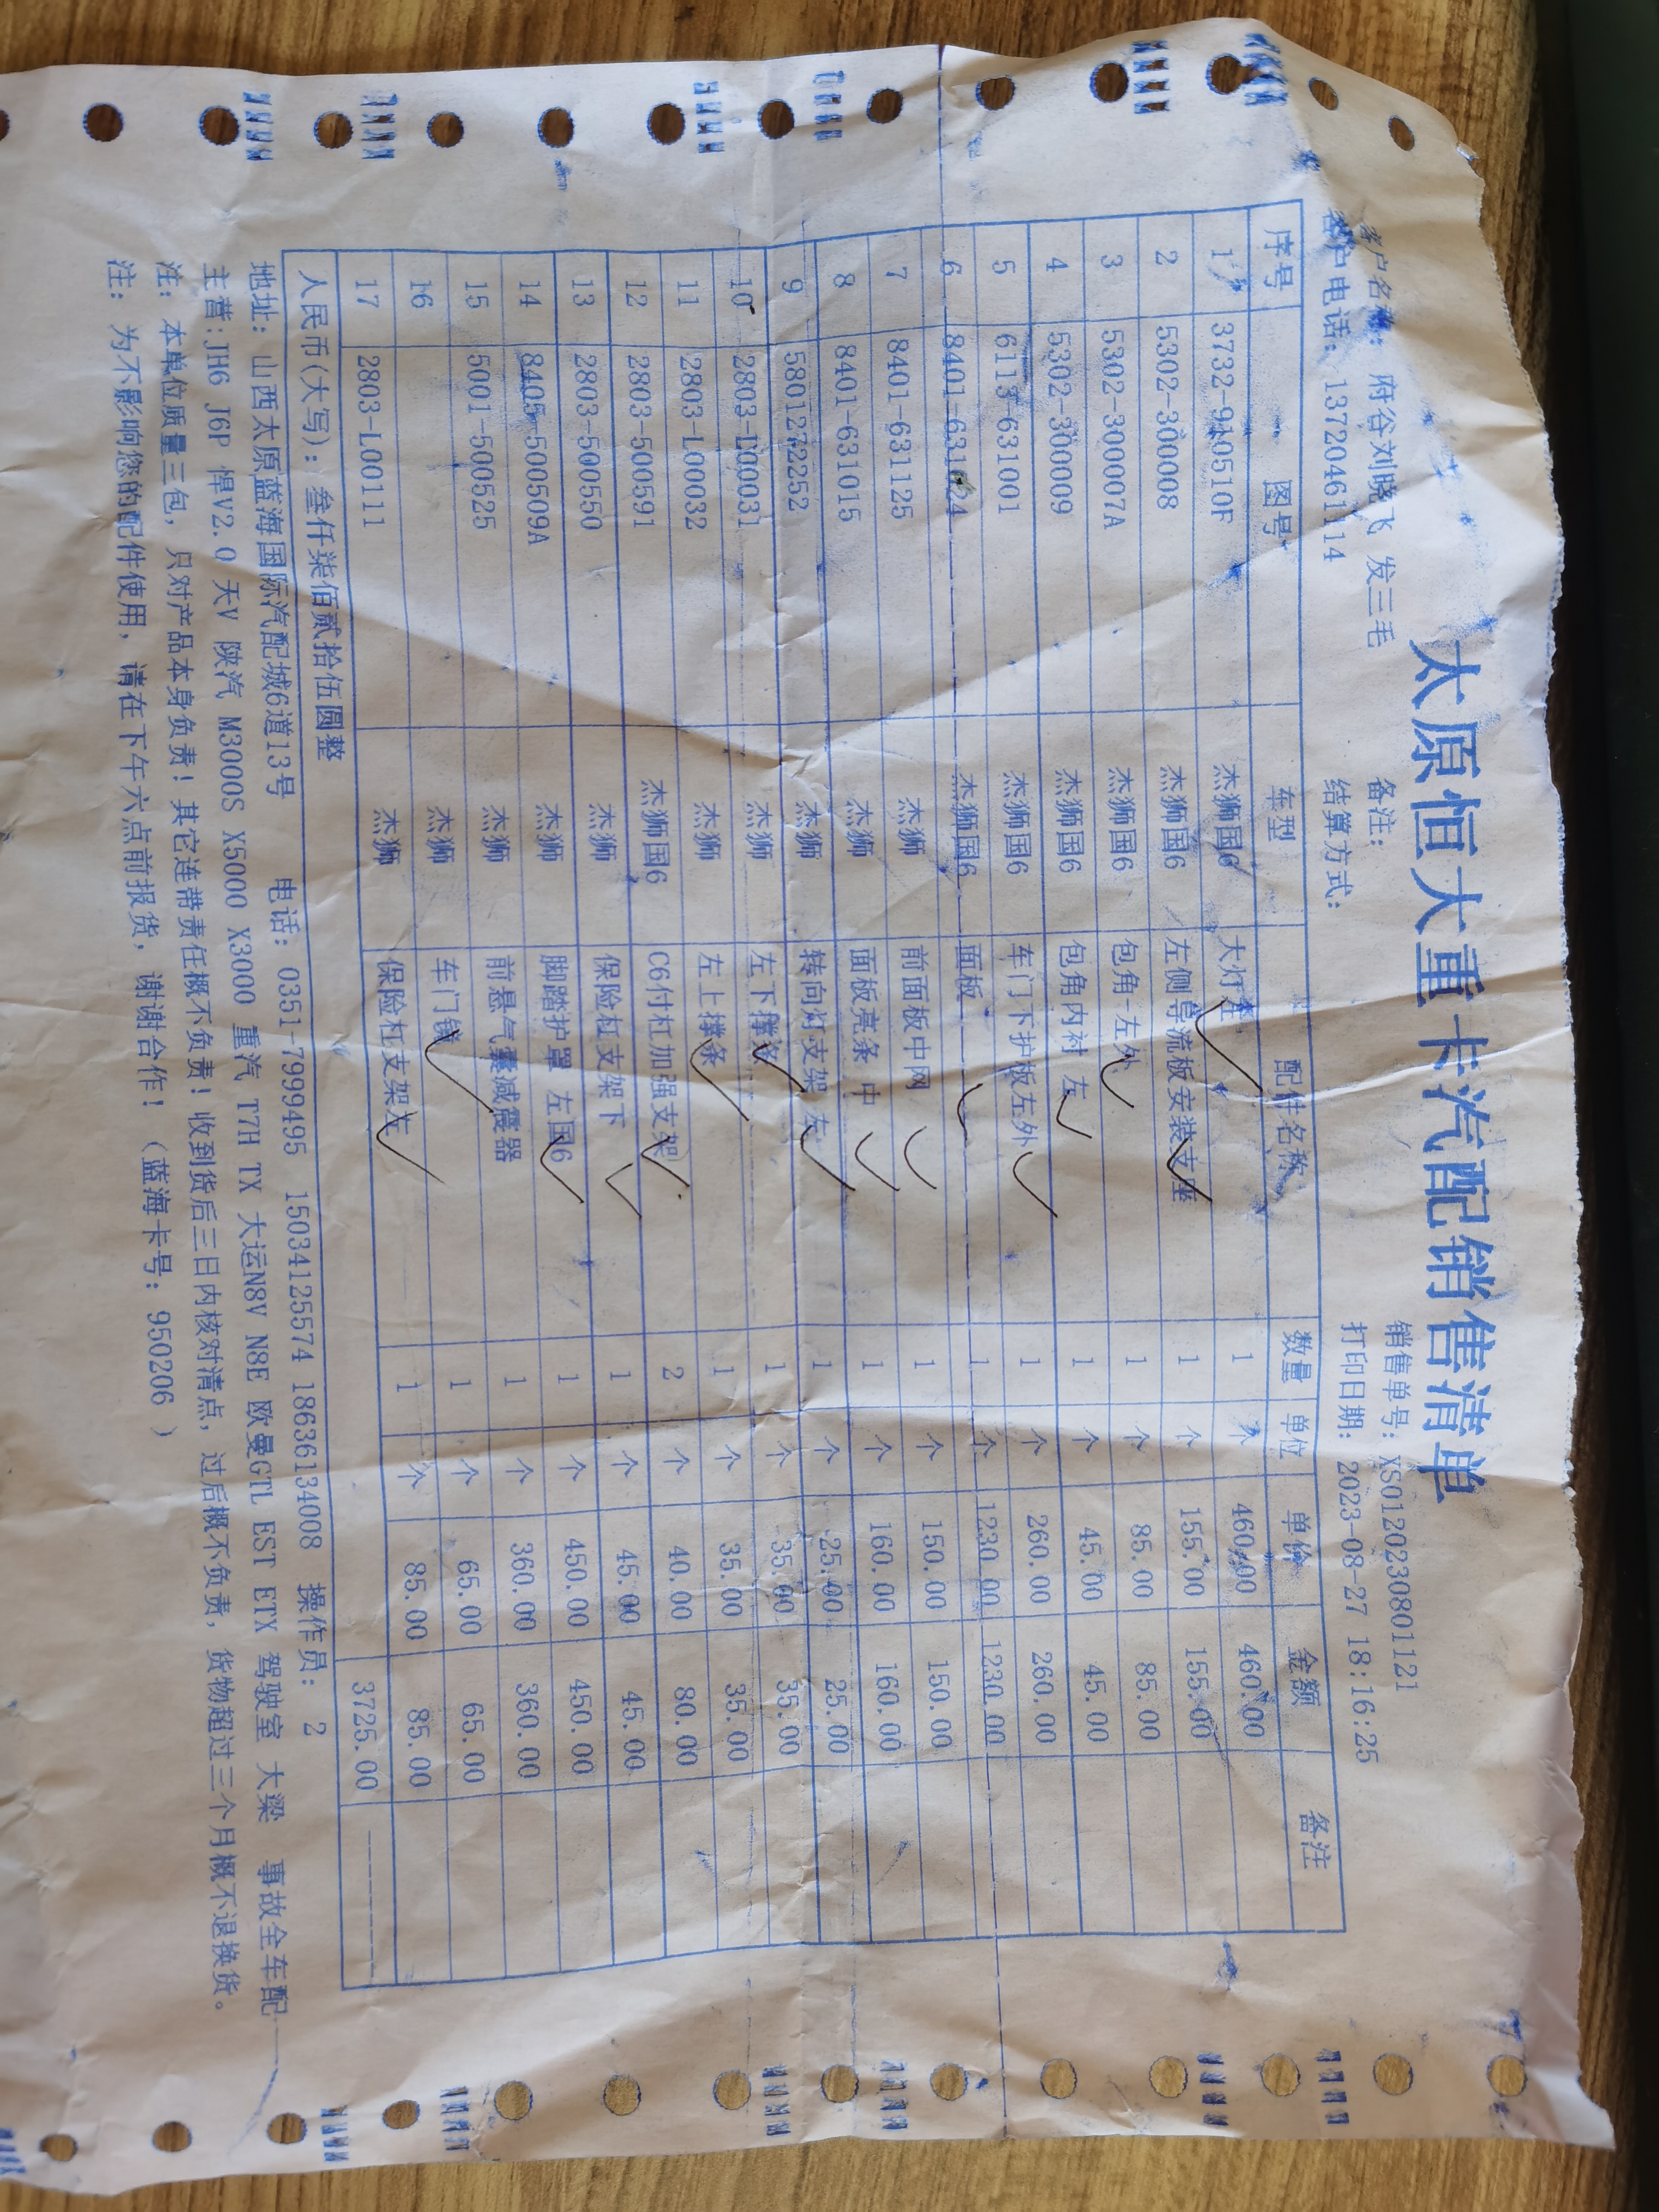 太原恒大重卡汽配销售清单
客户名称: 府谷刘晓飞 发三毛 备注: 销售单号: XS0120230801121
客户电话: 13720461114 结算方式: 打印日期: 2023-08-27 18:16:25
序号 图号 车型 配件名称 数量 单位 单价 金额 备注
1 3732-910510F 杰狮国6 大灯 1 个 460.00 460.00
2 5302-300008 杰狮国6 左侧导流板安装支座 1 个 155.00 155.00
3 5302-300007A 杰狮国6 包角-左外 1 个 85.00 85.00
4 5302-300009 杰狮国6 包角内衬 左 1 个 45.00 45.00
5 6113-631001 杰狮国6 车门下护板左外 1 个 260.00 260.00
6 8401-631024 杰狮国6 面板 1 个 1230.00 1230.00
7 8401-631125 杰狮 前面板中网 1 个 150.00 150.00
8 8401-631015 杰狮 面板亮条 中 1 个 160.00 160.00
9 5801272252 杰狮 转向灯支架 左 1 个 25.00 25.00
10 2803-L00031 杰狮 左下撑条 1 个 35.00 35.00
11 2803-L00032 杰狮 左上撑条 1 个 35.00 35.00
12 2803-500591 杰狮国6 C6付杠加强支架 2 个 40.00 80.00
13 2803-500550 杰狮 保险杠支架下 1 个 45.00 45.00
14 8405-500509A 杰狮 脚踏护罩 左国6 1 个 450.00 450.00
15 5001-500525 杰狮 前悬气囊减震器 1 个 360.00 360.00
16 杰狮 车门 1 个 65.00 65.00
17 2803-L00111 杰狮 保险杠支架左 1 个 85.00 85.00
人民币(大写): 叁仟柒佰贰拾伍圆整 3725.00
地址: 山西太原蓝海国际汽配城6道13号 电话: 0351-7999495 15034125574 18636134008 操作员: 2
主营:JH6 J6P 悍V2.0 天V 陕汽 M3000S X5000 X3000 重汽 T7H TX 大运N8V N8E 欧曼GTL EST ETX 驾驶室 大梁 事故全车配
注: 本单位质量三包, 只对产品本身负责! 其它连带责任概不负责! 收到货后三日内核对清点, 过后概不负责, 货物超过三个月概不退换货。
注: 为不影响您的配件使用, 请在下午六点前报货, 谢谢合作! (蓝海卡号: 950206 )